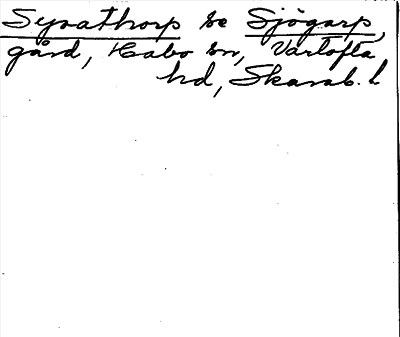 Syrathorp se Sjögarp,
gård, Habo sn, Vartofta
hd, Skarab. l.